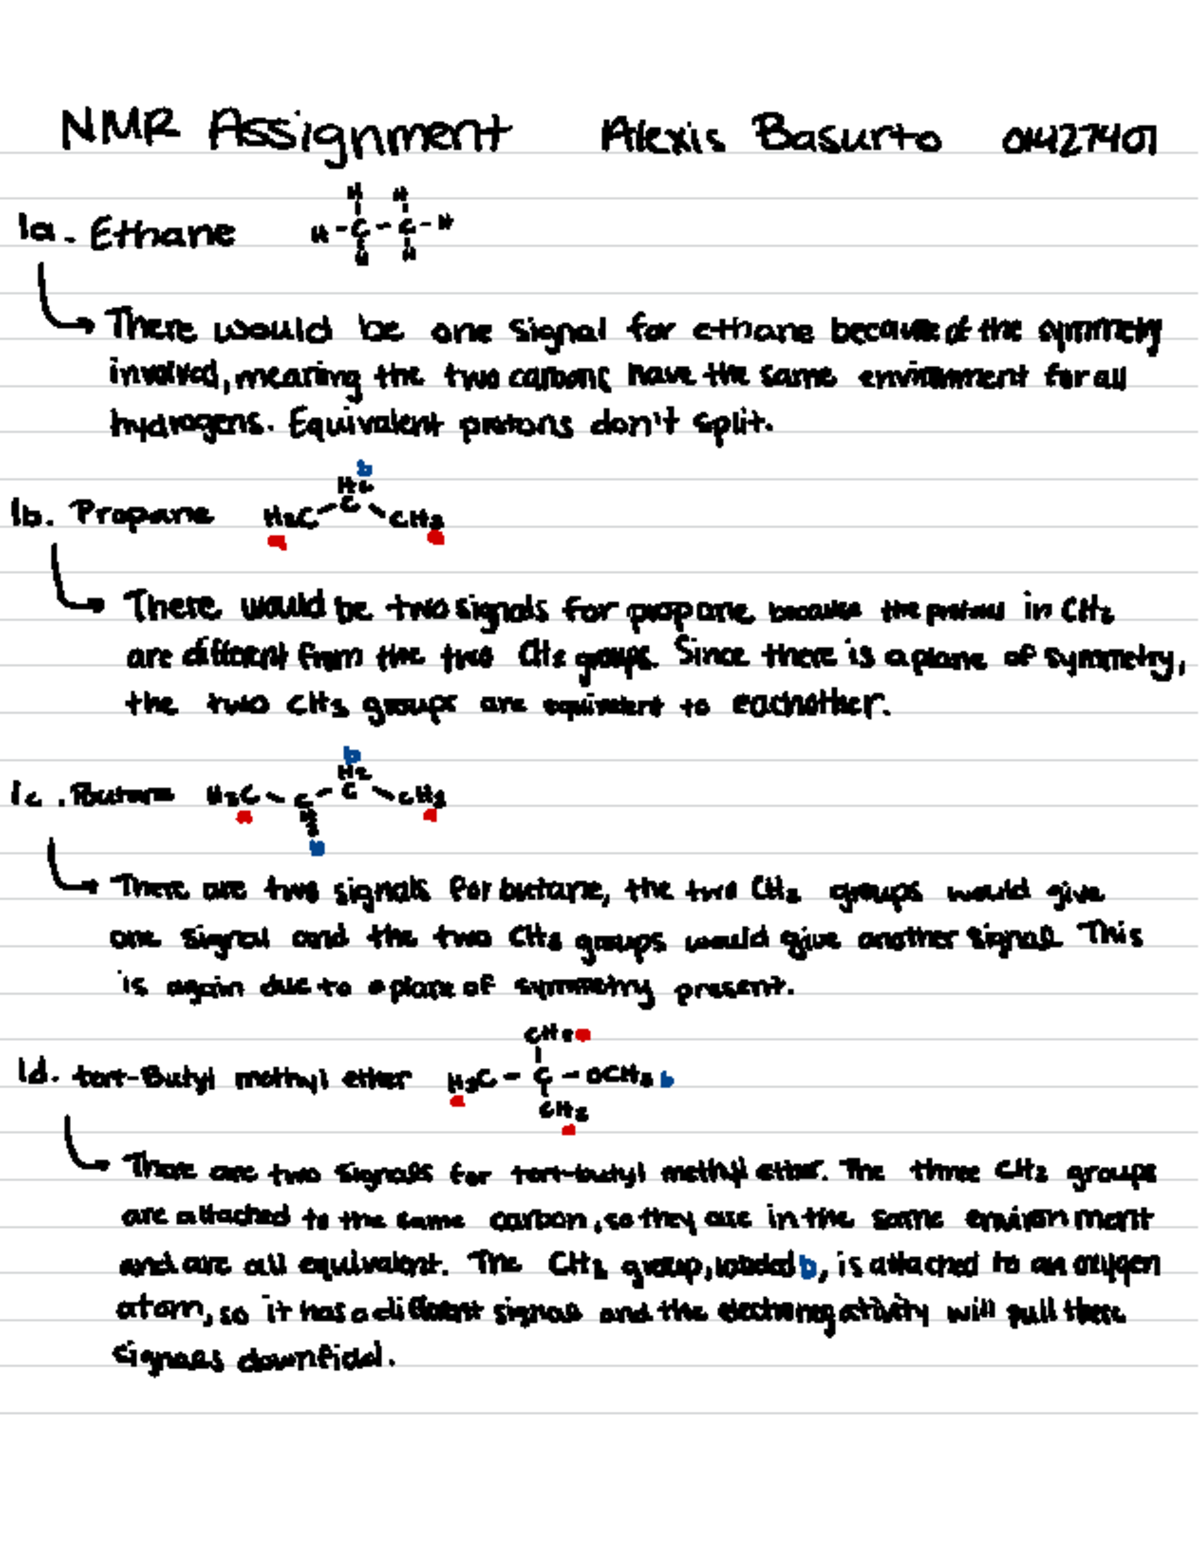 NMR Assignment Alexis Basurto 01427407
1a. Ethane
H H
H - C - C - H
H H
There would be one signal for ethane because of the symmetry
involved, meaning the two carbons have the same environment for all
hydrogens. Equivalent protons don't split.
b
H₂
1b. Propane H₃C C CH₃
a a
There would be two signals for propane because the protons in CH₂
are different from the two CH₃ groups. Since there is a plane of symmetry,
the two CH₃ groups are equivalent to eachother.
b
H₂
1c. Butane H₃C C C CH₃
a H₂ a
b
There are two signals for butane, the two CH₂ groups would give
one signal and the two CH₃ groups would give another signal. This
is again due to a plane of symmetry present.
CH₃ a
1d. tert-Butyl methyl ether H₃C - C - OCH₃ b
a CH₃
a
There are two signals for tert-butyl methyl ether. The three CH₃ groups
are attached to the same carbon, so they are in the same environment
and are all equivalent. The CH₃ group, labeled b, is attached to an oxygen
atom, so it has a different signal and the electronegativity will pull there
signals downfield.